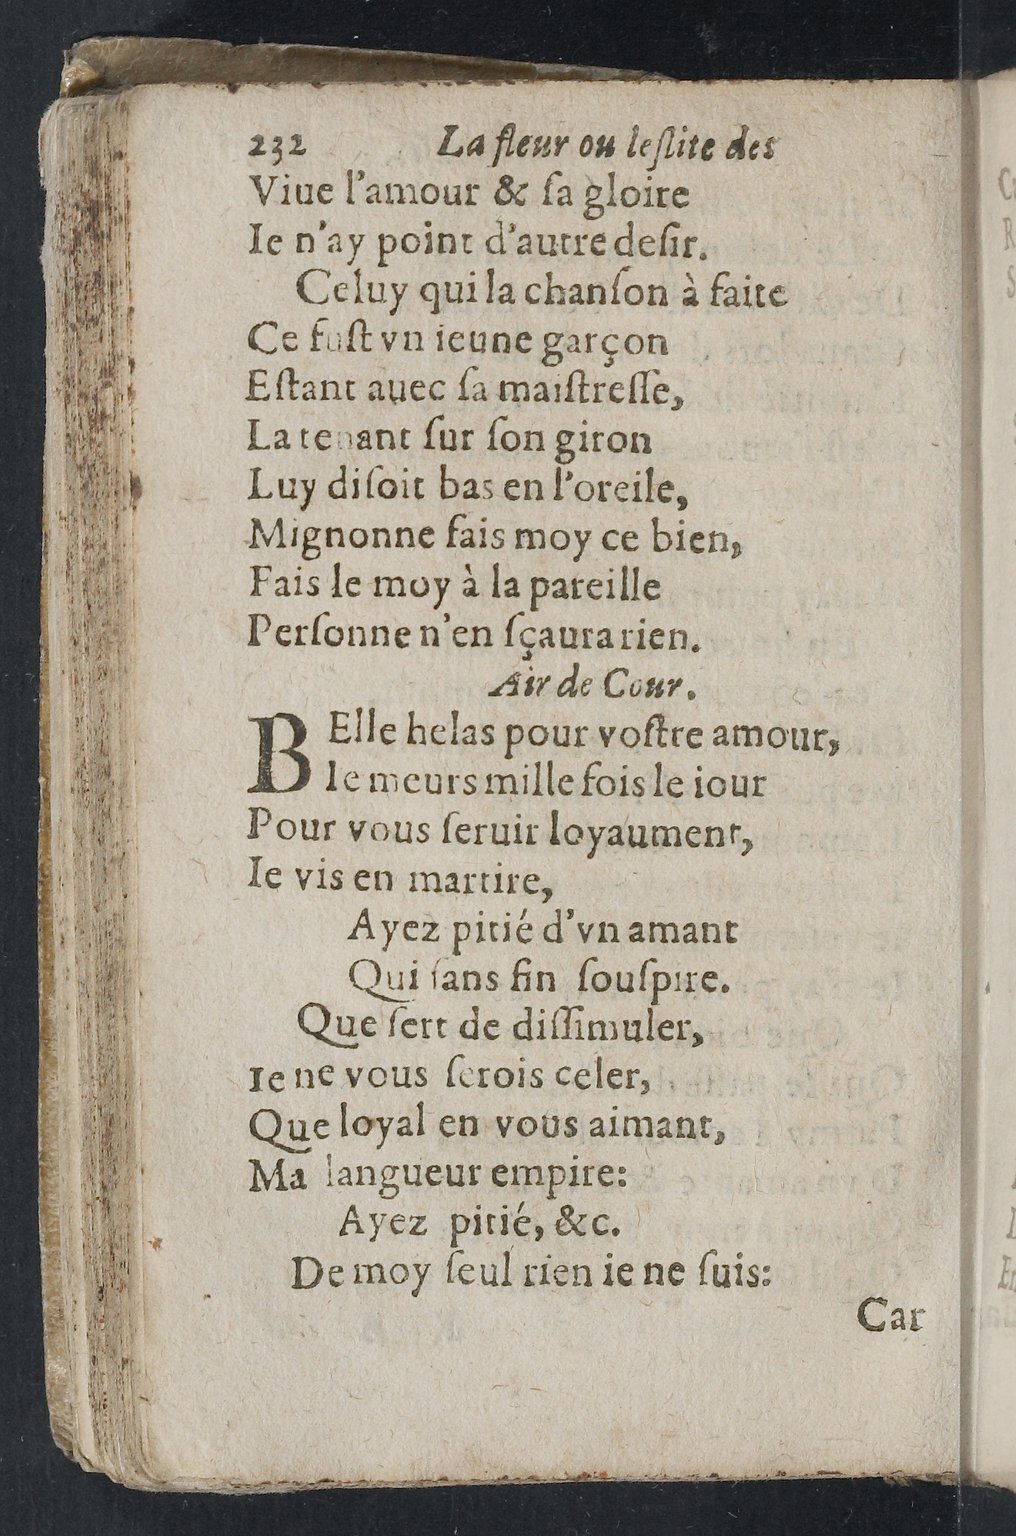 232 La fleur ou leſlite des
Viue l'amour & ſa gloire
Ie n'ay point d'autre deſir.
Celuy qui la chanſon à faite
Ce fuſt vn ieune garçon
Eſtant auec ſa maiſtreſſe,
La tenant ſur ſon giron
Luy diſoit bas en l'oreile,
Mignonne fais moy ce bien,
Fais le moy à la pareille
Perſonne n'en ſçaura rien.
Air de Cour.
BElle helas pour voſtre amour,
Ie meurs mille fois le iour
Pour vous ſeruir loyaument,
Ie vis en martire,
Ayez pitié d'vn amant
Qui ſans fin ſouſpire.
Que ſert de diſſimuler,
Ie ne vous ſerois celer,
Que loyal en vous aimant,
Ma langueur empire:
Ayez pitié, &c.
De moy ſeul rien ie ne ſuis:
Car